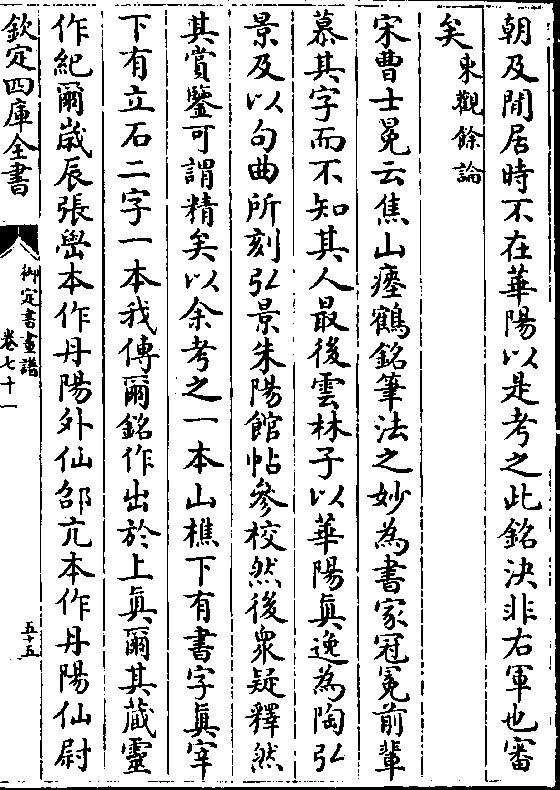 朝及閒居時不在華陽以是考之此銘決非右軍也審
矣東觀餘論
宋曹士冕云焦山瘞鶴銘筆法之妙為書家冠冕前輩
慕其字而不知其人最後雲林子以華陽真逸為陶弘
景及以句曲所刻弘景朱陽館帖參校然後衆疑釋然
其賞鑒可謂精矣以余考之一本山樵下有書字真宰
下有立石二字一本我傳爾銘作出於上真爾其藏靈
作紀爾歲辰張壆本作丹陽外仙邵亢本作丹陽仙尉
欽定四庫全書
御定書畫譜
卷七十一
五十五